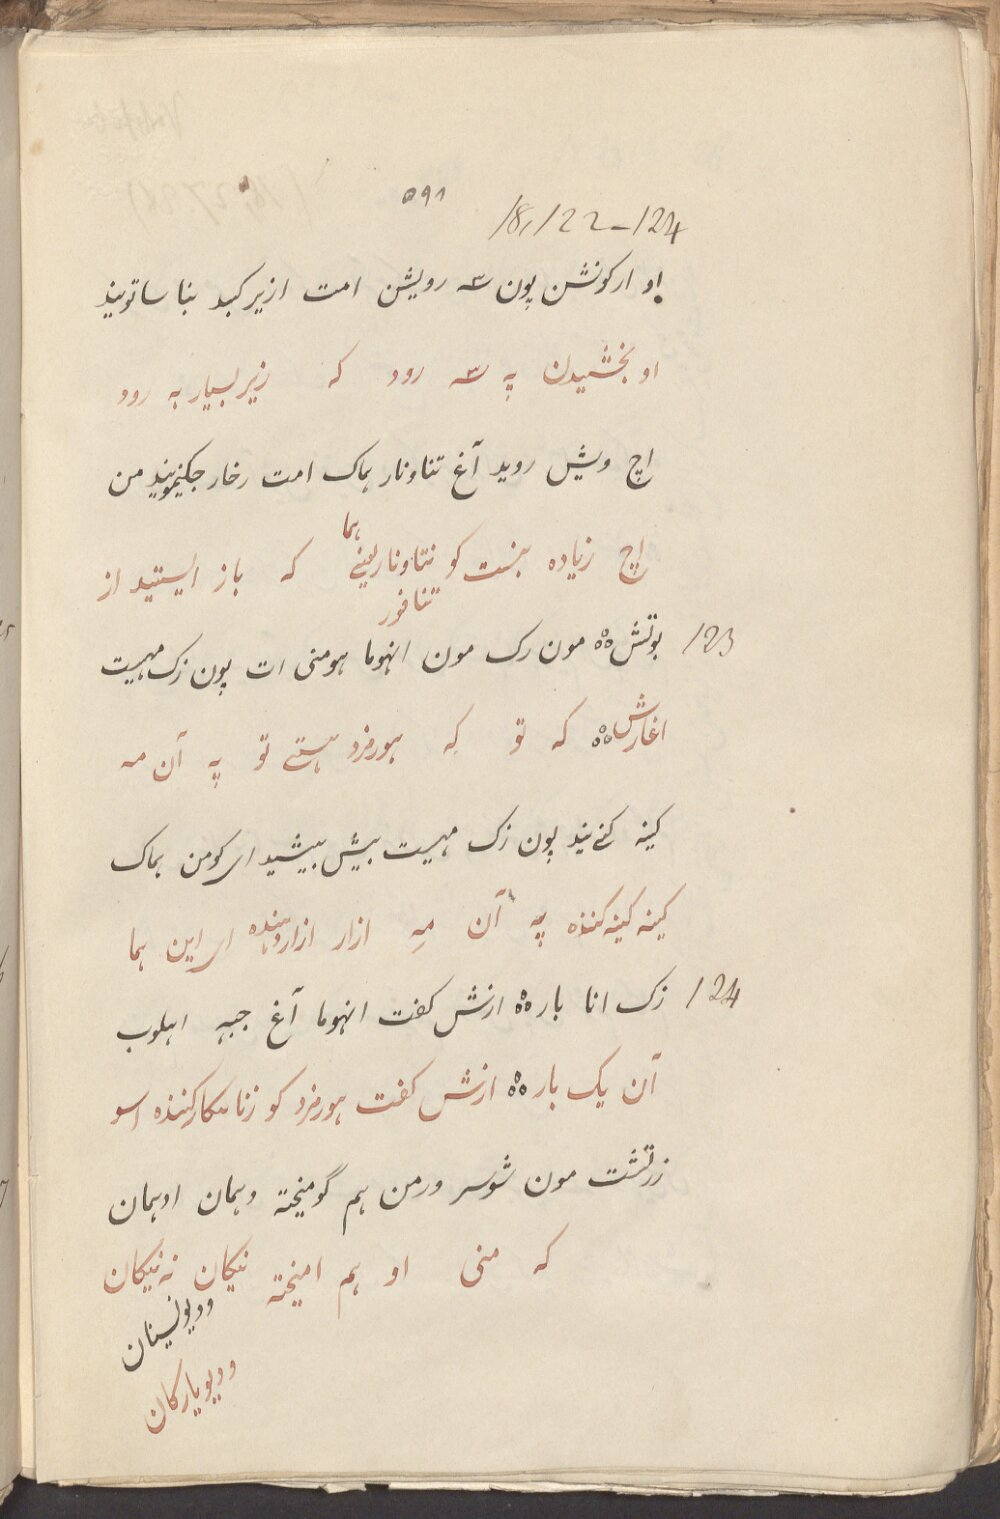 ۵۹۱
18,122-124
او ارکونشن پون سه رویشن امت ازیر کبد بنا ساتونید
او بخشیدن په سه رود که زیر بسیار به رود
اچ ویش روید آغ تناونار هماک امت رخار جکنیمونید من
اچ زیاده بنست کو تناونار یعنی هما که باز ایستید از
تنافور
123 بوتش مون رک مون انهوما هومنی ات پون زک مهیست
اغارش که تو که هورمزد هستے تو په آن مه
کینه کنےنید پون زک مهیست بیش بیشید ای کومن هماک
کینه کینه کننده په آن مه ازار ازاروهنده ای این هما
124 زک انا بار ازش کفت انهوما آغ جهه اهلوب
آن یک بار ازش کفت هورمزد کو زناهکار کننده اسو
زرتشت مون شوسر ورمن هم گومیخته وهمان اوهمان
که منی او هم امیخته نیکان نه نیکان
ودیویسنان
ودیویارکان